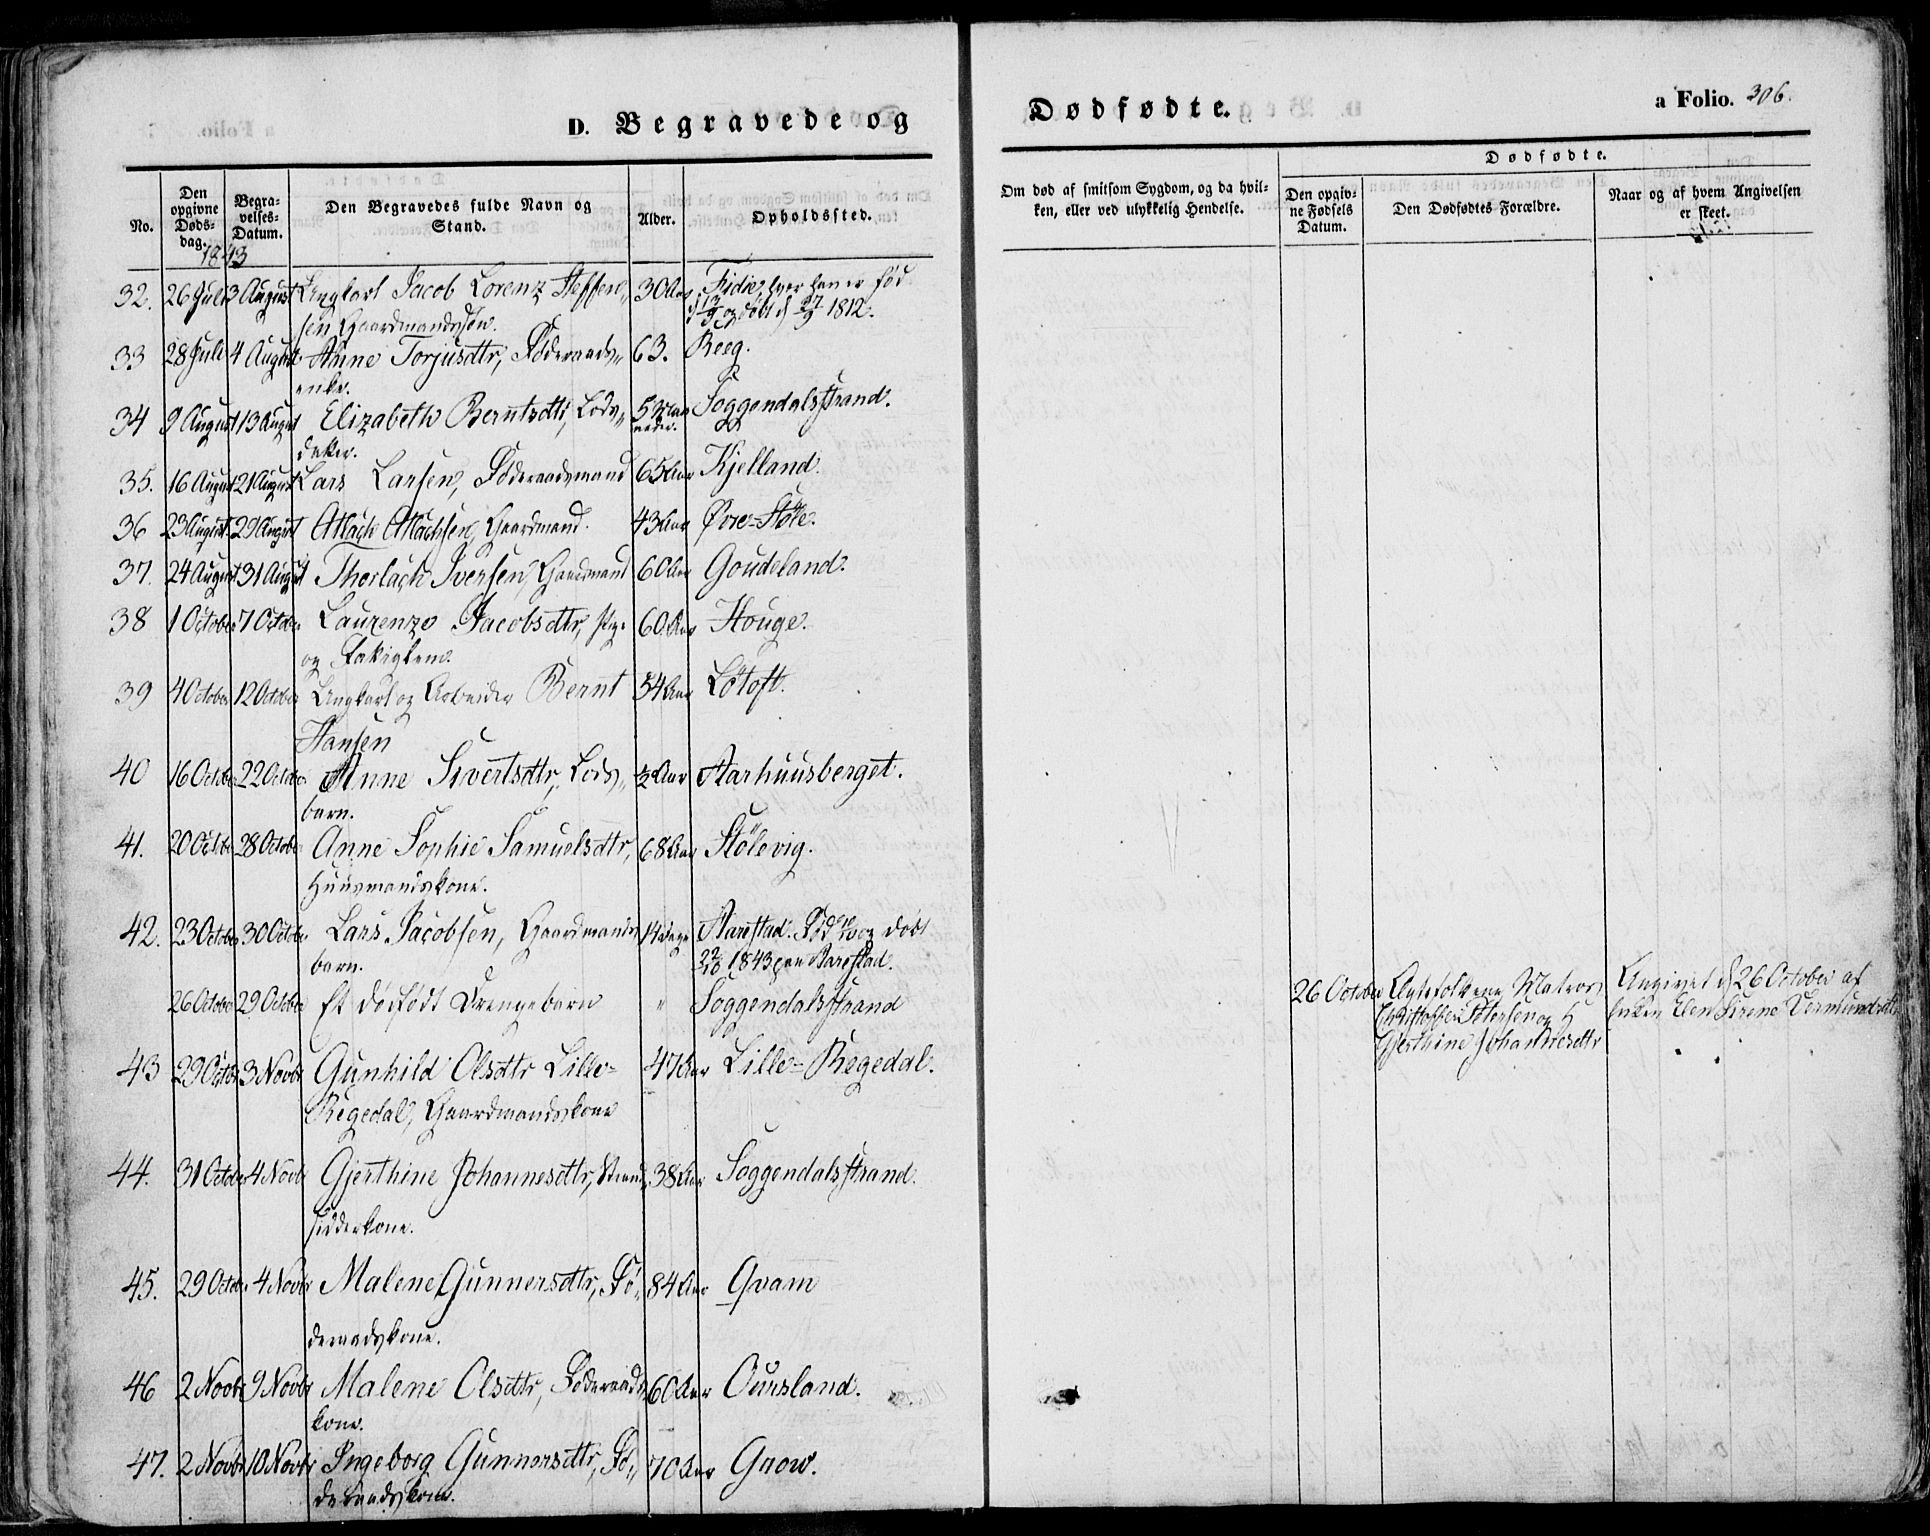 D. Begravede og
Dødfødte.
a Folio. 306.
No.
Den opgivne Døds-dag.
Begra-velses-Datum.
Den Begravedes fulde Navn og Stand.
Alder.
Opholdssted.
Om død af smitsom Sygdom, og da hvil-
ken, eller ved ulykkelig Hendelse.
Dødfødte.
Den opgiv-
ne Fødsels
Datum.
Den Dødfødtes Forældre.
Naar og af hvem Angivelsen
er skeet.
1843
32. 26 Juli 3 August Ungkarl Jacob Lorenz Steffen- 30 Aar Fidie, hvor han er fød
sen Gaardmandssøn. og døbt 1812.
33 28 Juli 4 August Anne Torjusdtr, Føderaads- 63. Reeg.
enke.
34 9 August 13 August Elizabeth Berntsdtr, Lods- Soggendalsstrand.
datter.
35. 16 August 21 August Lars Larsen, Føderaadsmand 65 Aar Kjelland.
36 23 August 29 August Atlach Atlachsen, Gaardmand. 43 Aar Øvre-Støle.
37. 24 August 31 August Thorlach Iversen, Gaardmand 60 Aar Goudeland.
38 1 October 7 October Laurenze Jacobsdtr, 60 Aar Houge.
og
39 4 October 12 October Ungkarl og Arbeider Bernt 54 Aar Løtoft.
Hansen
40 16 October 22 October Anne Sivertsdtr, Lods- Aar Aarhuusberget.
barn.
41. 20 October 28 October Anne Sophie Samuelsdtr, 68 Aar Stølevig.
Huusmandskone.
42. 23 October 30 October Lars Jacobsen, Gaardmands 14 Dage Aarestad. Fød og døbt
barn. 1843 paa Barestad.
26 October 29 October Et dødfødt Drengebarn " Soggendalsstrand 26 October Ægtefolkene Matros Angivet d 26 October af
Christoffer Petersen og Enken Elen Sirene Vermundsdtr
Gjerthine Johannesdtr
43 29 October 3 Novbr Gunhild Olsdtr Lille- 47 Aar Lille-Regedal.
Regedal, Gaardmandskone
44. 31 October 4 Novbr Gjerthine Johannesdtr, Strand- 38 Aar Soggendalsstrand.
sidderkone.
45. 29 October 4 Novbr Malene Gunnersdtr, Fø- 84 Aar Qvam
deraadskone.
46 2 Novbr 9 Novbr Malene Olsdtr, Føderaads 60 Aar Oursland.
kone.
47. 2 Novbr 10 Novbr Ingeborg Gunnersdtr, Fø- 70 Aar Grow.
deraadskone.